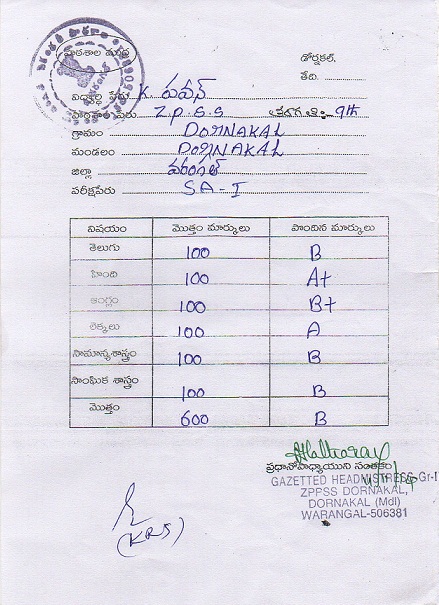 పాఠశాల ముద్ర
డోర్నకల్,
తేది.
విద్యార్థి పేరు K. పవన్
పాఠశాల పేరు Z.P.S.S తరగతి:- 9th
గ్రామం DORNAKAL
మండలం DORNAKAL
జిల్లా వరంగల్
పరీక్షపేరు SA-I
విషయం మొత్తం మార్కులు పొందిన మార్కులు
తెలుగు 100 B
హింది 100 A+
ఆంగ్లం 100 B+
లెక్కలు 100 A
సామాన్యశాస్త్రం 100 B
సాంఘిక శాస్త్రం 100 B
మొత్తం 600 B
ప్రధానోపాధ్యాయుని సంతకం
GAZETTED HEADMISTRESS Gr-I
ZPPSS DORNAKAL,
DORNAKAL (Mdl)
WARANGAL-506381
(KRS)